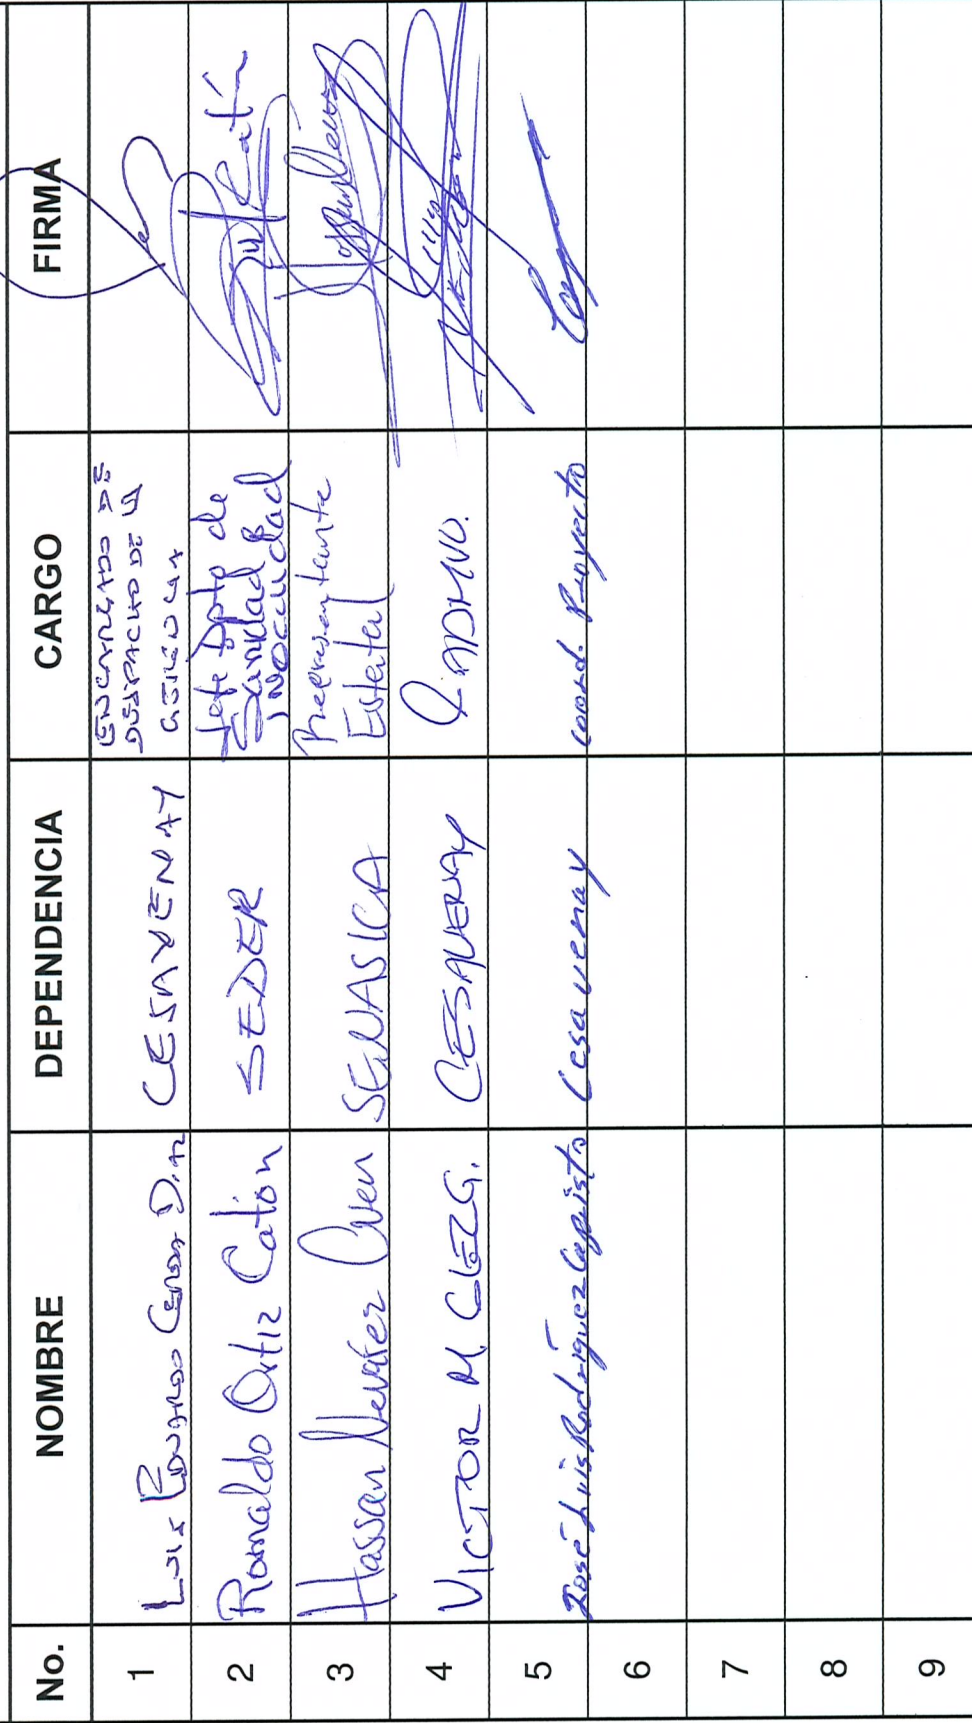 No. NOMBRE DEPENDENCIA CARGO FIRMA
1 Luis Eduardo Díaz CESAVENAY ENCARGADO DE
DESPACHO DE LA
GERENCIA
2 Romaldo Ortiz Catón SEDER Jefe Dpto de
Sanidad e
INOCUIDAD Catón
3 Hassan Nevárez SENASICA Representante
Estatal
4 VICTOR M. GLEZ G. CESAVENAY ADMVO.
5 José Luis Rodríguez Capisto Cesavenay Coord. Proyecto
6
7
8
9